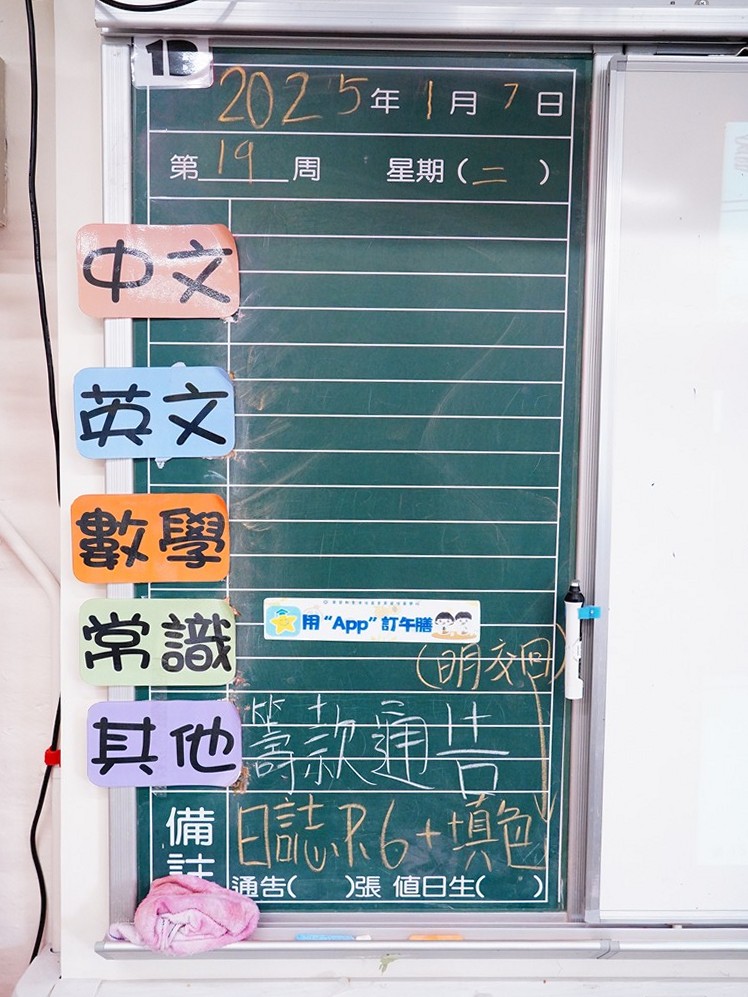 1D
2025年1月7日
第19周 星期(二)
中文
英文
數學
常識
用“App”訂午膳
(明交回)
其他 籌款通告
備註 日誌P.6+填色
通告( )張 值日生( )